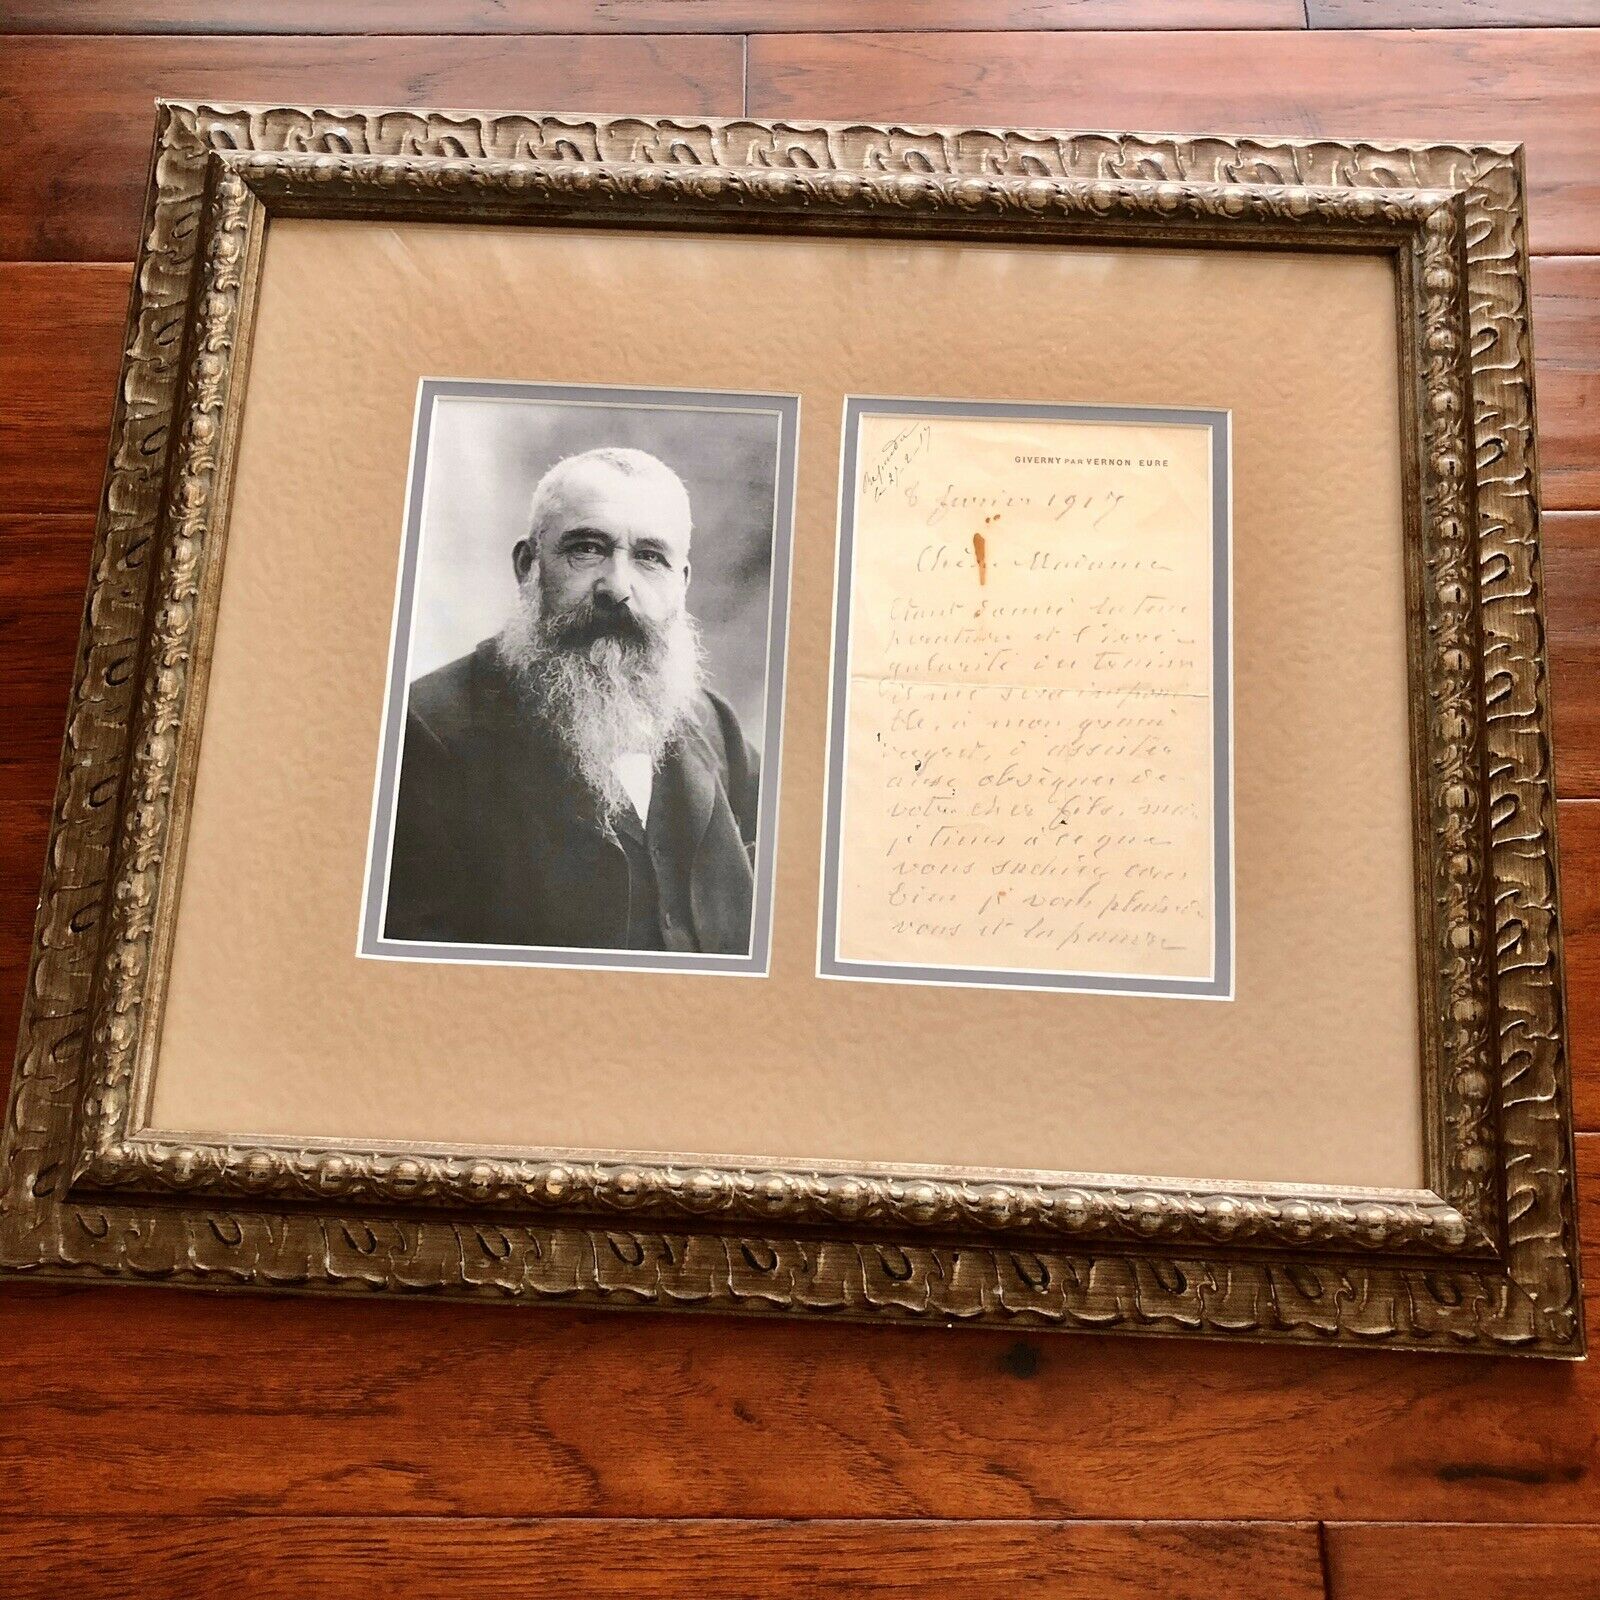 Répondu
le 27-2-17
GIVERNY PAR VERNON EURE
8 février 1917
Chère Madame
Étant donné la tem
pérature et l'irré-
gularité des trains
il me sera impossi
ble, à mon grand
regret, d'assister
aux obsèques de
votre cher fils, mais
je tiens à ce que
vous sachiez com
bien je vous plains
vous et la pauvre